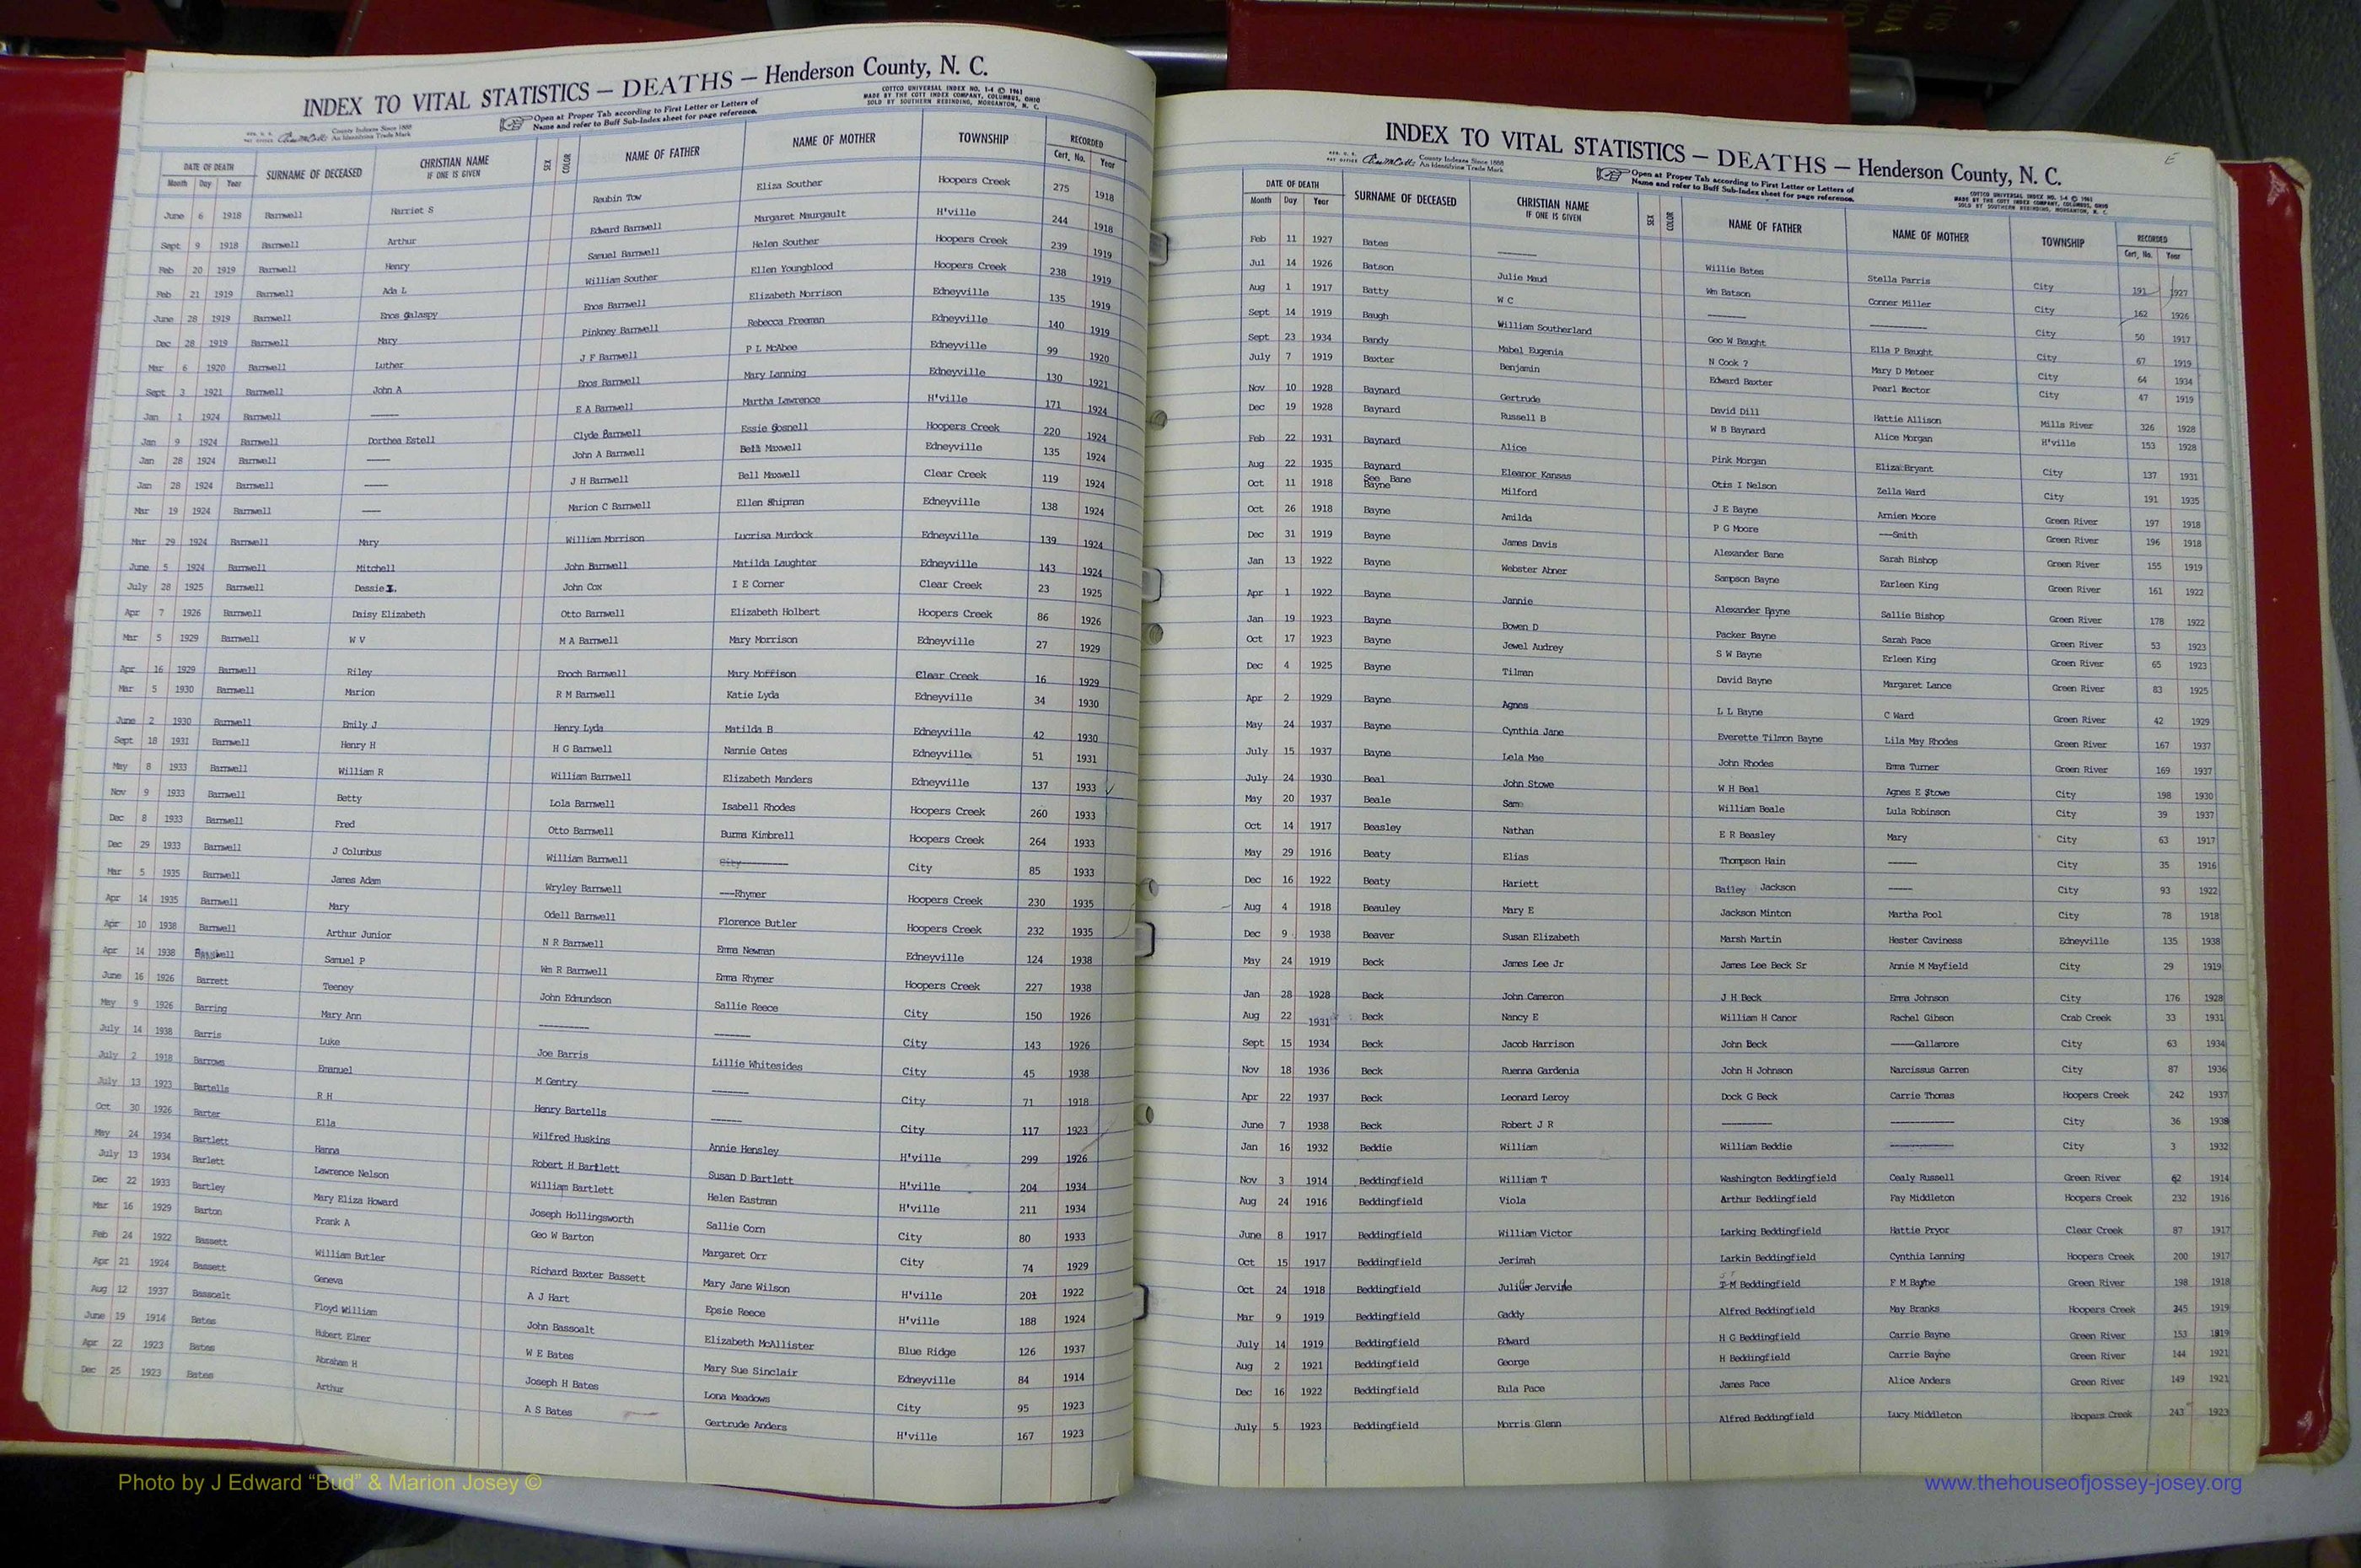 INDEX TO VITAL STATISTICS — DEATHS — Henderson County, N. C.
COTTCO UNIVERSAL INDEX NO. 1-4 © 1961
MADE BY THE COTT INDEX COMPANY, COLUMBUS, OHIO
SOLD BY SOUTHERN REBINDING, MORGANTON, N. C.
County Indexes Since 1888
An Identifying Trade Mark
Open at Proper Tab according to First Letter or Letters of
Name and refer to Buff Sub-Index sheet for page reference.
DATE OF DEATH SURNAME OF DECEASED CHRISTIAN NAME IF ONE IS GIVEN SEX COLOR NAME OF FATHER NAME OF MOTHER TOWNSHIP RECORDED
Month Day Year Cert. No. Year
June 6 1918 Barnwell Harriet S Reubin Tow Eliza Souther Hoopers Creek 275 1918
Sept 9 1918 Barnwell Arthur Edward Barnwell Margaret Maurgault H'ville 244 1918
Feb 20 1919 Barnwell Henry Samuel Barnwell Helen Souther Hoopers Creek 239 1919
Feb 21 1919 Barnwell Ada L William Souther Ellen Youngblood Hoopers Creek 238 1919
June 28 1919 Barnwell Enos Galaspy Enos Barnwell Elizabeth Morrison Edneyville 135 1919
Dec 28 1919 Barnwell Mary Pinkney Barnwell Rebecca Freeman Edneyville 140 1919
Mar 6 1920 Barnwell Luther J F Barnwell P L McAbee Edneyville 99 1920
Sept 3 1921 Barnwell John A Enos Barnwell Mary Lanning Edneyville 130 1921
Jan 1 1924 Barnwell ----- E A Barnwell Martha Lawrence H'ville 171 1924
Jan 9 1924 Barnwell Dorthea Estell Clyde Barnwell Essie Gosnell Hoopers Creek 220 1924
Jan 28 1924 Barnwell ---- John A Barnwell Bell Maxwell Edneyville 135 1924
Jan 28 1924 Barnwell ---- J H Barnwell Bell Maxwell Clear Creek 119 1924
Mar 19 1924 Barnwell ---- Marion C Barnwell Ellen Shipman Edneyville 138 1924
Mar 29 1924 Barnwell Mary William Morrison Lucrisa Murdock Edneyville 139 1924
June 5 1924 Barnwell Mitchell John Barnwell Matilda Laughter Edneyville 143 1924
July 28 1925 Barnwell Dessie L. John Cox I E Corner Clear Creek 23 1925
Apr 7 1926 Barnwell Daisy Elizabeth Otto Barnwell Elizabeth Holbert Hoopers Creek 86 1926
Mar 5 1929 Barnwell W V M A Barnwell Mary Morrison Edneyville 27 1929
Apr 16 1929 Barnwell Riley Enoch Barnwell Mary Morrison Clear Creek 16 1929
Mar 5 1930 Barnwell Marion R M Barnwell Katie Lyda Edneyville 34 1930
June 2 1930 Barnwell Emily J Henry Lyda Matilda B Edneyville 42 1930
Sept 18 1931 Barnwell Henry H H G Barnwell Nannie Oates Edneyville 51 1931
May 8 1933 Barnwell William R William Barnwell Elizabeth Manders Edneyville 137 1933
Nov 9 1933 Barnwell Betty Lola Barnwell Isabell Rhodes Hoopers Creek 260 1933
Dec 8 1933 Barnwell Fred Otto Barnwell Burma Kimbrell Hoopers Creek 264 1933
Dec 29 1933 Barnwell J Columbus William Barnwell City-------- City 85 1933
Mar 5 1935 Barnwell James Adam Wryley Barnwell ---Rhymer Hoopers Creek 230 1935
Apr 14 1935 Barnwell Mary Odell Barnwell Florence Butler Hoopers Creek 232 1935
Apr 10 1938 Barnwell Arthur Junior N R Barnwell Emma Newman Edneyville 124 1938
Apr 14 1938 Barnwell Samuel P Wm R Barnwell Emma Rhymer Hoopers Creek 227 1938
June 16 1926 Barrett Teeney John Edmundson Sallie Reece City 150 1926
May 9 1926 Barring Mary Ann --------- ------- City 143 1926
July 14 1938 Barris Luke Joe Barris Lillie Whitesides City 45 1938
July 2 1918 Barrows Emanuel M Gentry ------- City 71 1918
July 13 1923 Bartells R H Henry Bartells ------ City 117 1923
Oct 30 1926 Barter Ella Wilfred Huskins Annie Hensley H'ville 299 1926
May 24 1934 Bartlett Hanna Robert H Bartlett Susan D Bartlett H'ville 204 1934
July 13 1934 Barlett Lawrence Nelson William Bartlett Helen Eastman H'ville 211 1934
Dec 22 1933 Bartley Mary Eliza Howard Joseph Hollingsworth Sallie Corn City 80 1933
Mar 16 1929 Barton Frank A Geo W Barton Margaret Orr City 74 1929
Feb 24 1922 Bassett William Butler Richard Baxter Bassett Mary Jane Wilson H'ville 201 1922
Apr 21 1924 Bassett Geneva A J Hart Epsie Reece H'ville 188 1924
Aug 12 1937 Bassoalt Floyd William John Bassoalt Elizabeth McAllister Blue Ridge 126 1937
June 19 1914 Bates Hubert Elmer W E Bates Mary Sue Sinclair Edneyville 84 1914
Apr 22 1923 Bates Abraham H Joseph H Bates Lona Meadows City 95 1923
Dec 25 1923 Bates Arthur A S Bates Gertrude Anders H'ville 167 1923
INDEX TO VITAL STATISTICS — DEATHS — Henderson County, N. C.
E
County Indexes Since 1888
An Identifying Trade Mark
Open at Proper Tab according to First Letter or Letters of
Name and refer to Buff Sub-Index sheet for page reference.
COTTCO UNIVERSAL INDEX NO. 1-4 © 1961
MADE BY THE COTT INDEX COMPANY, COLUMBUS, OHIO
SOLD BY SOUTHERN REBINDING, MORGANTON, N. C.
DATE OF DEATH SURNAME OF DECEASED CHRISTIAN NAME IF ONE IS GIVEN SEX COLOR NAME OF FATHER NAME OF MOTHER TOWNSHIP RECORDED
Month Day Year Cert. No. Year
Feb 11 1927 Bates ------- Willie Bates Stella Parris City 191 1927
Jul 14 1926 Batson Julie Maud Wm Batson Conner Miller City 162 1926
Aug 1 1917 Batty W C ------- ---------- City 50 1917
Sept 14 1919 Baugh William Southerland Geo W Baught Ella P Baught City 67 1919
Sept 23 1934 Bandy Mabel Eugenia N Cook ? Mary D Meteer City 64 1934
July 7 1919 Baxter Benjamin Edward Baxter Pearl Hector City 47 1919
Nov 10 1928 Baynard Gertrude David Dill Hattie Allison Mills River 326 1928
Dec 19 1928 Baynard Russell B W B Baynard Alice Morgan H'ville 153 1928
Feb 22 1931 Baynard Alice Pink Morgan Eliza Bryant City 137 1931
Aug 22 1935 Baynard Eleanor Kansas Otis I Nelson Zella Ward City 191 1935
See Bane
Oct 11 1918 Bayne Milford J E Bayne Arnien Moore Green River 197 1918
Oct 26 1918 Bayne Amilda P G Moore ---Smith Green River 196 1918
Dec 31 1919 Bayne James Davis Alexander Bane Sarah Bishop Green River 155 1919
Jan 13 1922 Bayne Webster Abner Sampson Bayne Earleen King Green River 161 1922
Apr 1 1922 Bayne Jannie Alexander Bayne Sallie Bishop Green River 178 1922
Jan 19 1923 Bayne Bowen D Packer Bayne Sarah Pace Green River 53 1923
Oct 17 1923 Bayne Jewel Audrey S W Bayne Erleen King Green River 65 1923
Dec 4 1925 Bayne Tilman David Bayne Margaret Lance Green River 83 1925
Apr 2 1929 Bayne Agnes L L Bayne C Ward Green River 42 1929
May 24 1937 Bayne Cynthia Jane Everette Tilmon Bayne Lila May Rhodes Green River 167 1937
July 15 1937 Bayne Lela Mae John Rhodes Emma Turner Green River 169 1937
July 24 1930 Beal John Stowe W H Beal Agnes E Stowe City 198 1930
May 20 1937 Beale Sam William Beale Lula Robinson City 39 1937
Oct 14 1917 Beasley Nathan E R Beasley Mary City 63 1917
May 29 1916 Beaty Elias Thompson Hain ----- City 35 1916
Dec 16 1922 Beaty Hariett Bailey Jackson ---- City 93 1922
Aug 4 1918 Beauley Mary E Jackson Minton Martha Pool City 78 1918
Dec 9 1938 Beaver Susan Elizabeth Marsh Martin Hester Caviness Edneyville 135 1938
May 24 1919 Beck James Lee Jr James Lee Beck Sr Annie M Mayfield City 29 1919
Jan 28 1928 Beck John Cameron J H Beck Emma Johnson City 176 1928
Aug 22 1931 Beck Nancy E William H Canor Rachel Gibson Crab Creek 33 1931
Sept 15 1934 Beck Jacob Harrison John Beck ----Gallamore City 63 1934
Nov 18 1936 Beck Ruenna Gardenia John H Johnson Narcissus Garren City 87 1936
Apr 22 1937 Beck Leonard Leroy Dock G Beck Carrie Thomas Hoopers Creek 242 1937
June 7 1938 Beck Robert J R --------- ----------- City 36 1938
Jan 16 1932 Beddie William William Beddie ----------- City 3 1932
Nov 3 1914 Beddingfield William T Washington Beddingfield Cealy Russell Green River 62 1914
Aug 24 1916 Beddingfield Viola Arthur Beddingfield Fay Middleton Hoopers Creek 232 1916
June 8 1917 Beddingfield William Victor Larking Beddingfield Hattie Pryor Clear Creek 87 1917
Oct 15 1917 Beddingfield Jerimah Larkin Beddingfield Cynthia Lanning Hoopers Creek 200 1917
Oct 24 1918 Beddingfield Julius Jervide M Beddingfield F M Bayne Green River 198 1918
Mar 9 1919 Beddingfield Gaddy Alfred Beddingfield May Branks Hoopers Creek 245 1919
July 14 1919 Beddingfield Edward H G Beddingfield Carrie Bayne Green River 153 1919
Aug 2 1921 Beddingfield George H Beddingfield Carrie Bayne Green River 144 1921
Dec 16 1922 Beddingfield Eula Pace James Pace Alice Anders Green River 149 1921
July 5 1923 Beddingfield Morris Glenn Alfred Beddingfield Lucy Middleton Hoopers Creek 243 1923
Photo by J Edward “Bud” & Marion Josey ©
www.thehouseofjossey-josey.org